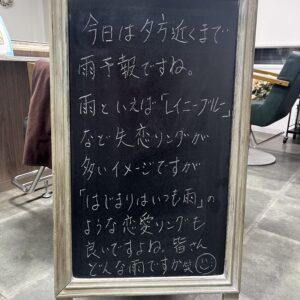 今日は夕方近くまで
雨予報ですね。
雨といえば「レイニーブルー」
など失恋ソングが
多いイメージですが
「はじまりはいつも雨」の
ような恋愛ソングも
良いですよね。皆さん
どんな雨ですか笑